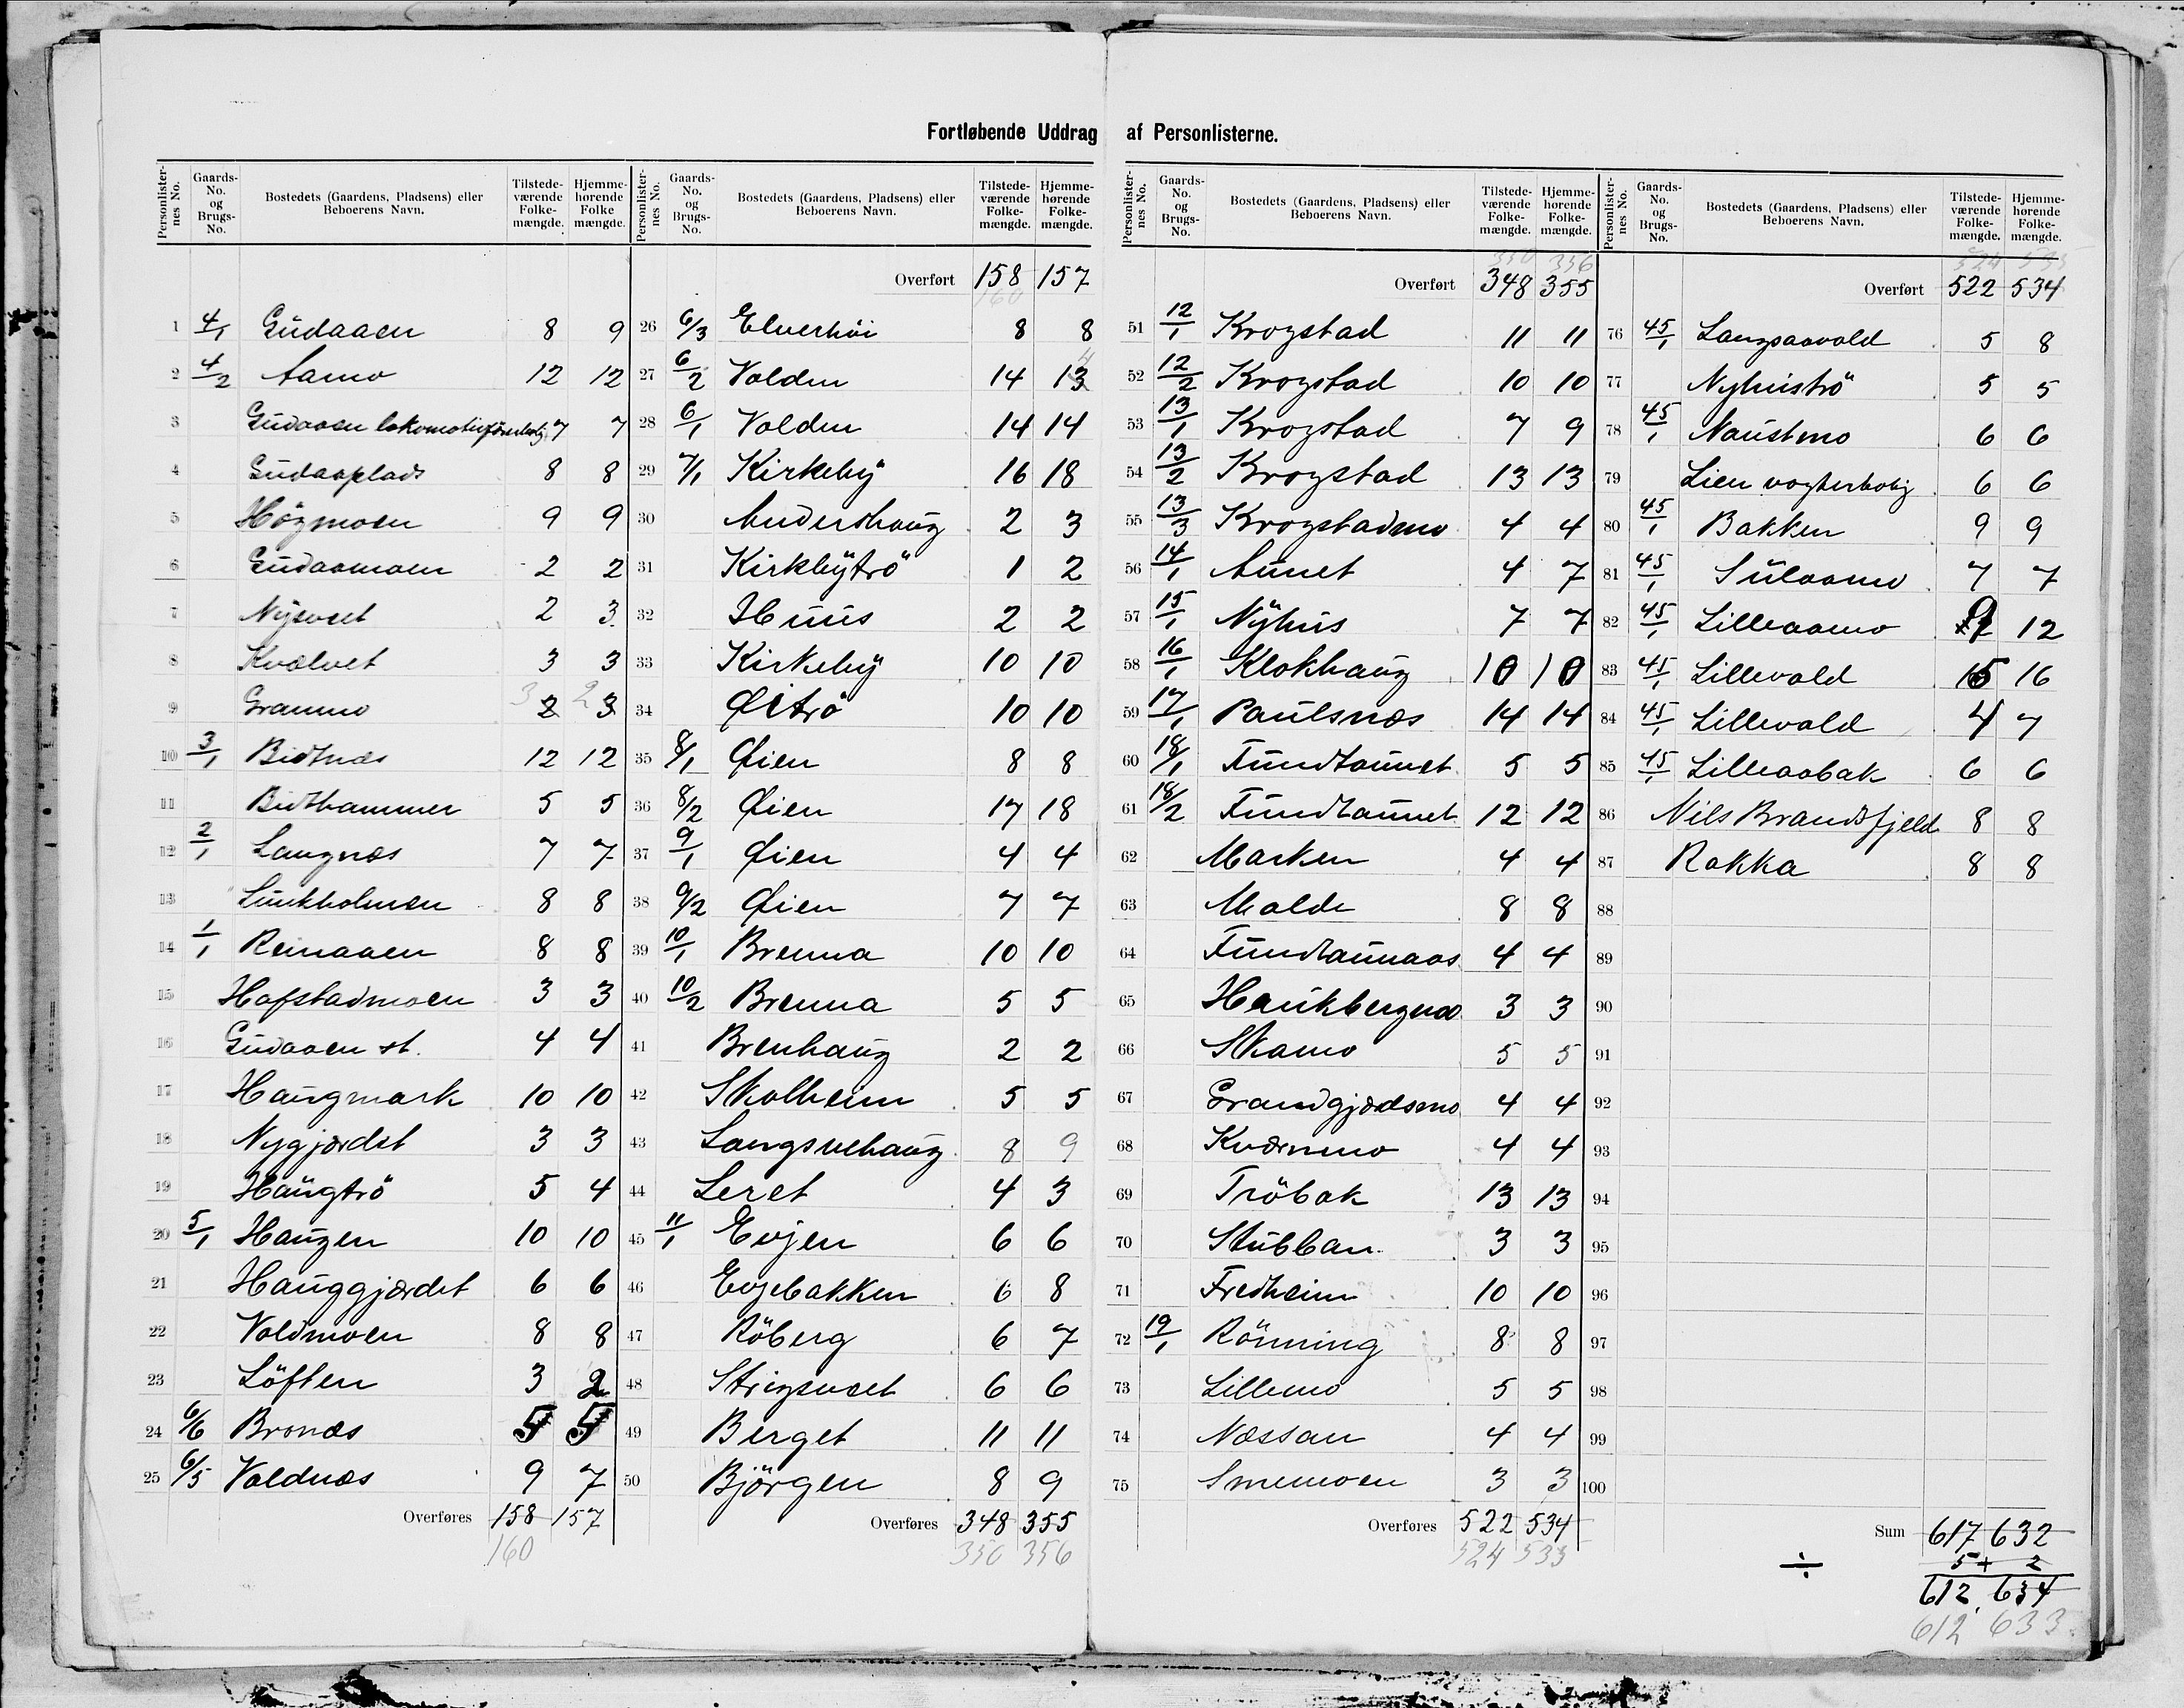 Fortløbende Uddrag af Personlisterne.
Personlisternes No. Gaards-No. og Brugs-No. Bostedets (Gaardens, Pladsens) eller Beboerens Navn. Tilstedeværende Folkemængde. Hjemmehørende Folke mængde.
1 4/1 Gudaaen 8 9
2 4/2 Aamo 12 12
3 Gudaaen lokomotivförerbolig 7 7
4 Gudaaplads 8 8
5 Högmoen 9 9
6 Gudaamoen 2 2
7 Nysveet 2 3
8 Kvælvet 3 3
9 Gramno 3 2 2 3
10 3/1 Bidtnæs 12 12
11 Bidthammer 5 5
12 2/1 Langnæs 7 7
13 Lunkholmen 8 8
14 1/1 Reinaaen 8 8
15 Hofstadmoen 3 3
16 Gudaaen st. 4 4
17 Haugmark 10 10
18 Nygjærdet 3 3
19 Haugtrö 5 4
20 5/1 Haugen 10 10
21 Hauggjærdet 6 6
22 Voldmoen 8 8
23 Löften 3 2
24 6/6 Bronæs 5 5
25 6/5 Valdnæs 9 7
Overføres 158 157
160
Personlisternes No. Gaards-No. og Brugs-No. Bostedets (Gaardens, Pladsens) eller Beboerens Navn. Tilstedeværende Folkemængde. Hjemmehørende Folkemængde.
Overført 158 157
160
26 6/3 Elverhöi 8 8
27 6/2 Volden 14 13 4
28 6/1 Volden 14 14
29 7/1 Kirkeby 16 18
30 Andershaug 2 3
31 Kirkbytrö 1 2
32 Huus 2 2
33 Kirkeby 10 10
34 Øitrö 10 10
35 8/1 Øien 8 8
36 8/2 Øien 17 18
37 9/1 Øien 4 4
38 9/2 Øien 7 7
39 10/1 Brenna 10 10
40 10/2 Brenna 5 5
41 Brenhaug 2 2
42 Skolheim 5 5
43 Langsvehaug 8 9
44 Leret 4 3
45 11/1 Evjen 6 6
46 Evjebakken 6 8
47 Röberg 6 7
48 Strigsveet 6 6
49 Berget 11 11
50 Björgen 8 9
Overføres 348 355
350 356
Personlisternes No. Gaards-No. og Brugs-No. Bostedets (Gaardens, Pladsens) eller Beboerens Navn. Tilstedeværende Folkemængde. Hjemmehørende Folkemængde.
350 356
Overført 348 355
51 12/1 Krogstad 11 11
52 12/2 Krogstad 10 10
53 13/1 Krogstad 7 9
54 13/2 Krogstad 13 13
55 13/3 Krogstadmo 4 4
56 14/1 Aunet 4 7
57 15/1 Nyhus 7 7
58 16/1 Klokhaug 10 10
59 17/1 Paulsnæs 14 14
60 18/1 Fundtaunet 5 5
61 18/2 Fundtaunet 12 12
62 Marken 4 4
63 Molde 8 8
64 Fundtaunaas 4 4
65 Haukbergmo 3 3
66 Skamo 5 5
67 Grandgjærdsmo 4 4
68 Kværnmo 4 4
69 Tröbak 13 13
70 Stubban 3 3
71 Fredheim 10 10
72 19/1 Rönning 8 8
73 Lillemo 5 5
74 Næssan 4 4
75 Smemoen 3 3
Overføres 522 534
524 535
Personlisternes No. Gaards-No. og Brugs-No. Bostedets (Gaardens, Pladsens) eller Beboerens Navn. Tilstedeværende Folkemængde. Hjemmehørende Folkemængde.
524 535
Overført 522 534
76 45/1 Langsaavold 5 8
77 Nyhuströ 5 5
78 45/1 Naustmo 6 6
79 Lien vogterbolig 6 6
80 45/1 Bakken 9 9
81 45/1 Sulaamo 7 7
82 45/1 Lilleaamo 12
83 45/1 Lillevold 15 16
84 45/1 Lillevold 4 7
85 45/1 Lilleaabak 6 6
86 Nils Brandsfjeld 8 8
87 Rokka 8 8
88
89
90
91
92
93
94
95
96
97
98
99
100
Sum 617 632
÷ 5 + 2
612 634
612 633